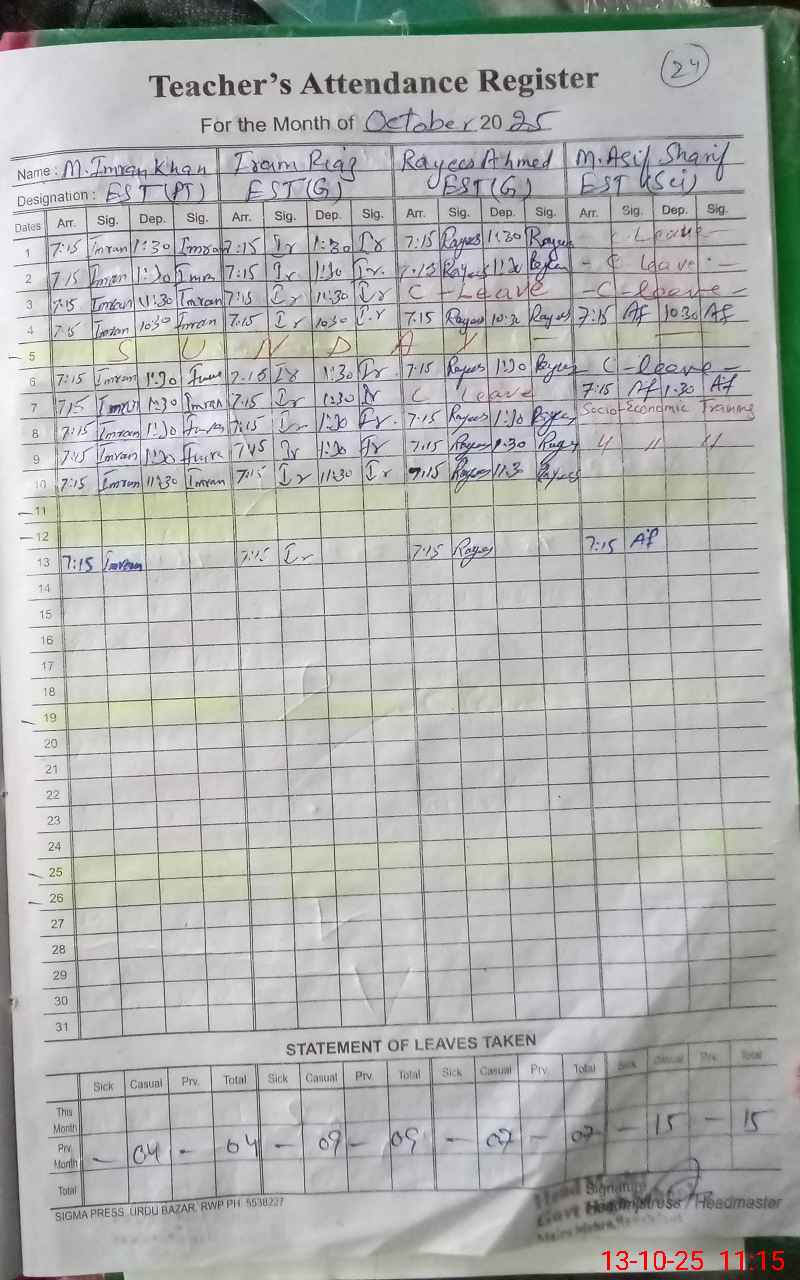 24
Teacher's Attendance Register
For the Month of October 2025
Name : M. Imran Khan Iram Riaz Rayees Ahmed M. Asif Sharif
Designation : EST (PT) EST (G) EST (G) EST (Sci)
Dates Arr. Sig. Dep. Sig. Arr. Sig. Dep. Sig. Arr. Sig. Dep. Sig. Arr. Sig. Dep. Sig.
1 7:15 Imran 1:30 Imran 7:15 Ir 1:30 Ir 7:15 Rayees 1:30 Rayees - C Leave -
2 7:15 Imran 1:30 Imran 7:15 Ir 1:30 Ir. 7:15 Rayees 1:30 Rayees - C leave -
3 7:15 Imran 11:30 Imran 7:15 Ir 11:30 Ir C - Leave - C - leave -
4 7:15 Imran 10:30 Imran 7:15 Ir 10:30 Ir 7:15 Rayees 10:30 Rayees 7:15 Af 10:30 Af
5 S U N D A Y
6 7:15 Imran 1:30 7:15 Ir 1:30 Ir 7:15 Rayees 1:30 Rayees C - leave -
7 7:15 Imran 1:30 Imran 7:15 Ir 1:30 Ir C Leave 7:15 Af 1:30 Af
8 7:15 Imran 1:30 7:15 Ir 1:30 Ir. 7:15 Rayees 1:30 Rayees Socio-Economic Training
9 7:15 Imran 1:30 7:15 Ir 1:30 Ir 7:15 Rayees 1:30 〃 〃 〃
10 7:15 Imran 11:30 Imran 7:15 Ir 11:30 Ir 7:15 Rayees 11:30 Rayees
11
12
13 7:15 Imran 7:15 Ir 7:15 Rayees 7:15 Af
14
15
16
17
18
19
20
21
22
23
24
25
26
27
28
29
30
31
STATEMENT OF LEAVES TAKEN
Sick Casual Prv. Total Sick Casual Prv. Total Sick Casual Prv. Total Sick Casual Prv. Total
This Month
Prv. Month - 04 - 04 - 09 - 09 - 07 - 07 - 15 - 15
Total
Signature
Headmistress / Headmaster
SIGMA PRESS, URDU BAZAR, RWP PH: 5538227
13-10-25 11:15